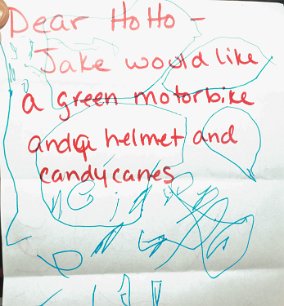 Dear HoHo -
Jake would like
a green motorbike
and a helmet and
candycanes